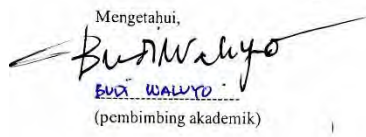 Mengetahui,
Budi Waluyo
BUDI WALUYO
(pembimbing akademik)